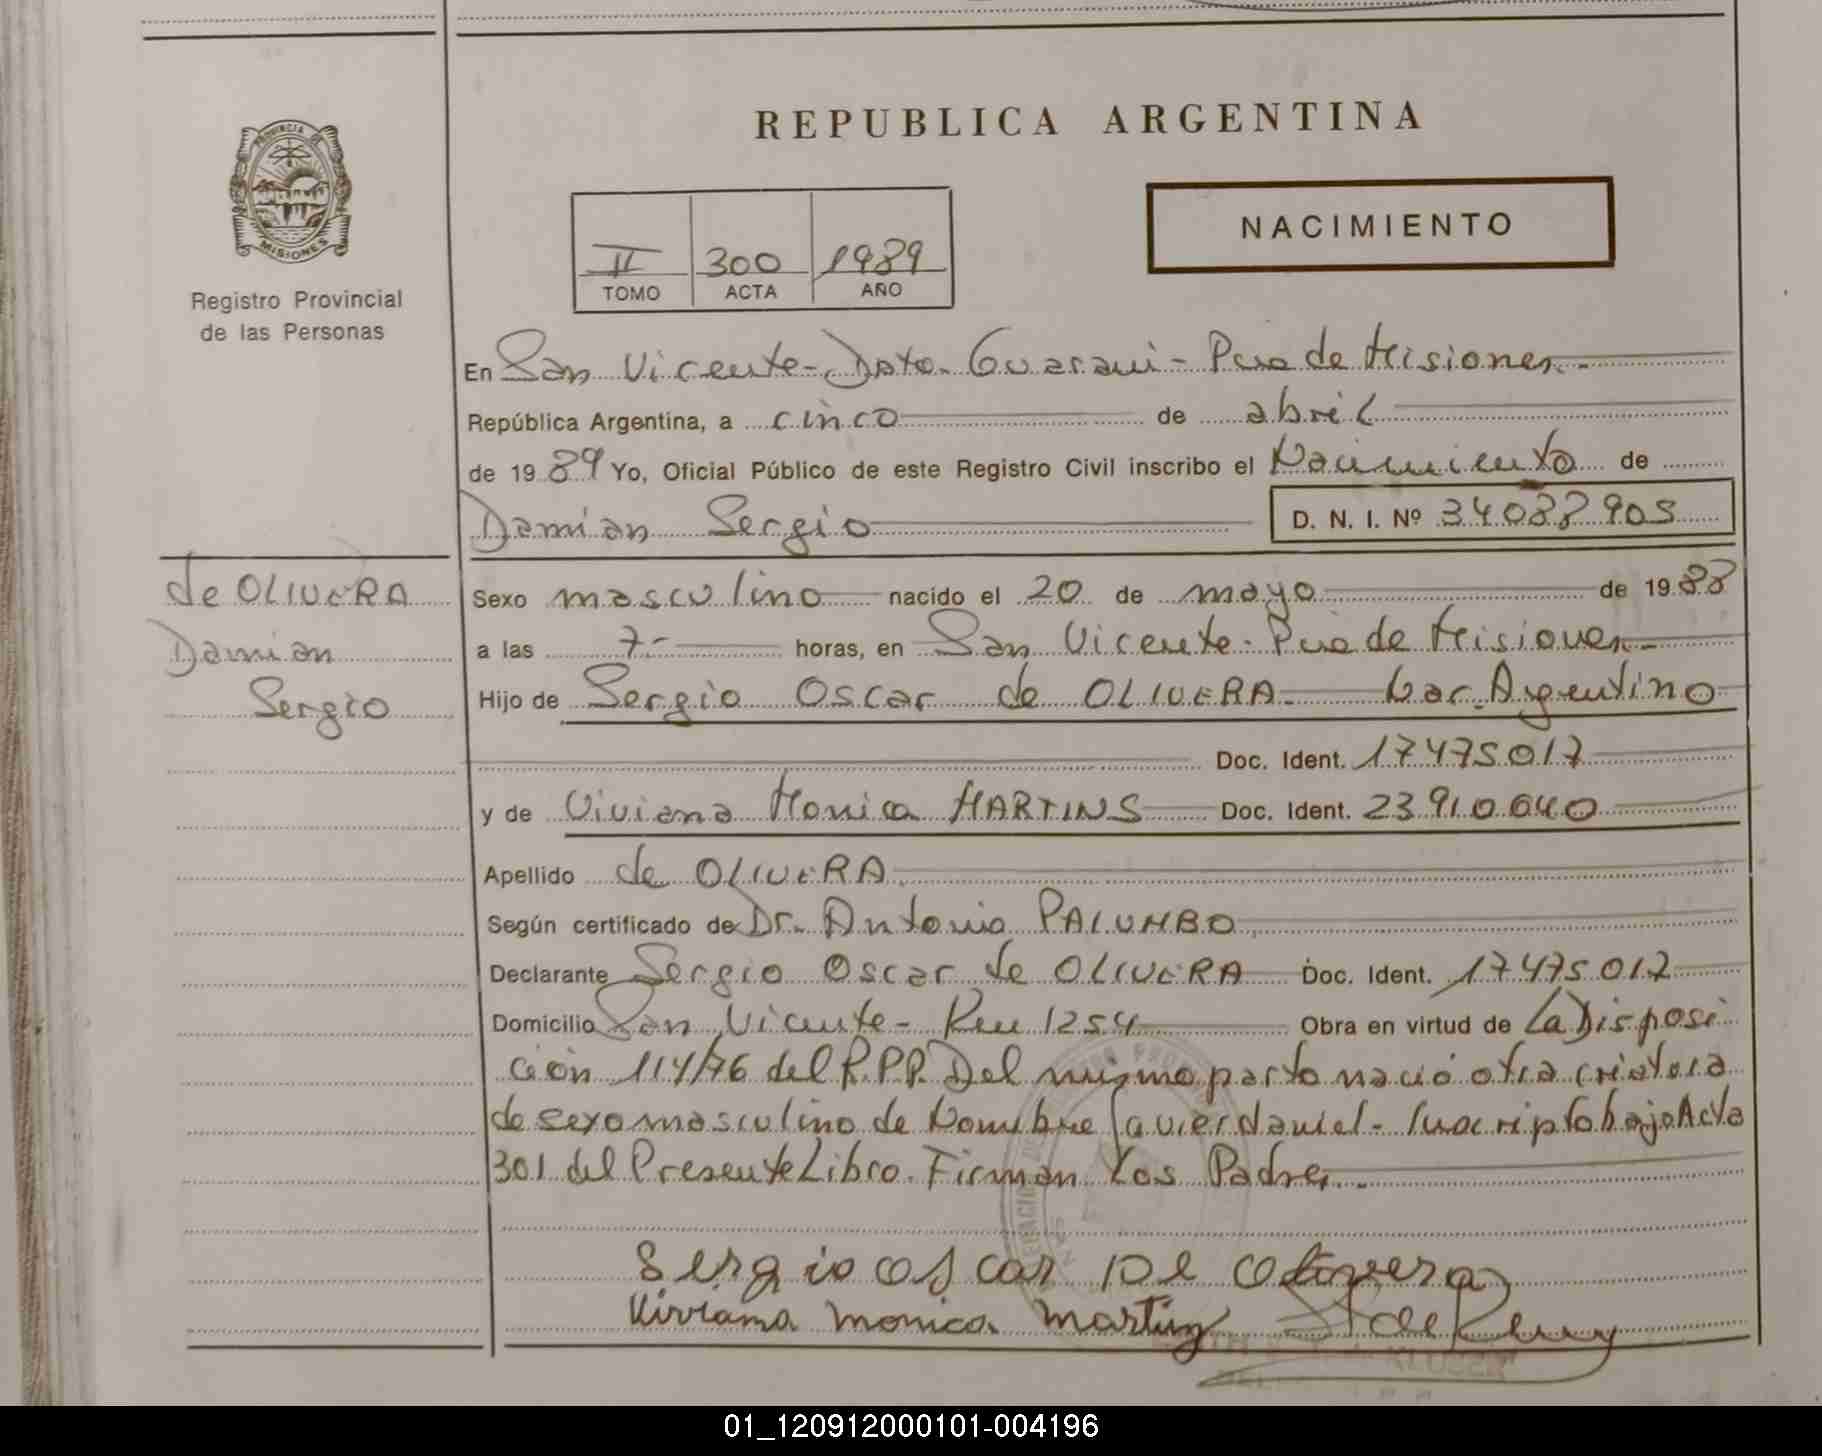 REPUBLICA ARGENTINA
PROVINCIA DE
MISIONES
Registro Provincial
de las Personas
II 300 1989
TOMO ACTA AÑO
NACIMIENTO
En San Vicente - Dpto. Guarani - Pcia de Misiones.-
República Argentina, a cinco de abril
de 1989 Yo, Oficial Público de este Registro Civil inscribo el Nacimiento de
Damian Sergio D. N. I. Nº 34088905
de OLIVERA
Damian
Sergio
Sexo masculino nacido el 20 de mayo de 1988
a las 7- horas, en San Vicente - Pcia de Misiones.-
Hijo de Sergio Oscar de OLIVERA - Nac. Argentino
Doc. Ident. 17475017
y de Viviana Monica MARTINS Doc. Ident. 23910640
Apellido de OLIVERA.
Según certificado de Dr. Antonio PALUMBO.
Declarante Sergio Oscar de OLIVERA Doc. Ident. 17475017
Domicilio San Vicente - Km 1254 Obra en virtud de La Disposi
ción 114/76 del R.P.P. Del mismo parto nació otra criatura
de sexo masculino de Nombre Javier daniel - Inscripto bajo Acta
301 del Presente Libro. Firman Los Padres.-
Sergio oscar De olivera
Viviana monica Martins
01_120912000101-004196